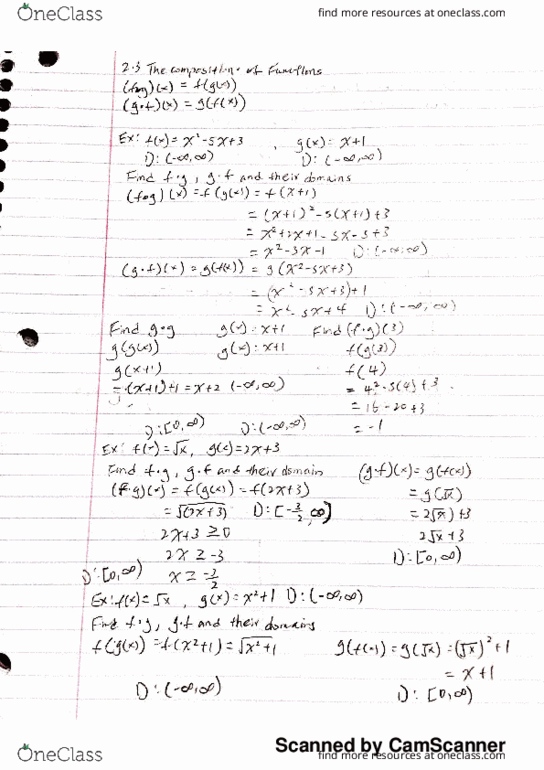 OneClass
find more resources at oneclass.com
2.3 The composition of Functions
(f∘g)(x) = f(g(x))
(g∘f)(x) = g(f(x))
Ex: f(x) = x²-5x+3 , g(x) = x+1
D: (-∞,∞) D: (-∞,∞)
Find f∘g, g∘f and their domains
(f∘g)(x) = f(g(x)) = f(x+1)
= (x+1)²-5(x+1)+3
= x²+2x+1-5x-5+3
= x²-3x-1 D: (-∞,∞)
(g∘f)(x) = g(f(x)) = g(x²-5x+3)
= (x²-5x+3)+1
= x²-5x+4 D: (-∞,∞)
Find g∘g g(x) = x+1 Find (f∘g)(3)
g(g(x)) g(x) = x+1 f(g(3))
g(x+1) f(4)
= (x+1)+1 = x+2 (-∞,∞) = 4²-5(4)+3
= 16-20+3
D: [0,∞) D: (-∞,∞) = -1
Ex: f(x) = √x, g(x) = 2x+3
Find f∘g, g∘f and their domain (g∘f)(x) = g(f(x))
(f∘g)(x) = f(g(x)) = f(2x+3) = g(√x)
= √(2x+3) D: [-3/2, ∞] = 2(√x)+3
2x+3 ≥ 0 2√x+3
2x ≥ -3 D: [0,∞)
D: [0,∞) x ≥ -3/2
Ex: f(x) = √x, g(x) = x²+1 D: (-∞,∞)
Find f∘g, g∘f and their domains
f(g(x)) = f(x²+1) = √x²+1 g(f(x)) = g(√x) = (√x)²+1
= x+1
D: (-∞,∞) D: [0,∞)
Scanned by CamScanner
OneClass
find more resources at oneclass.com